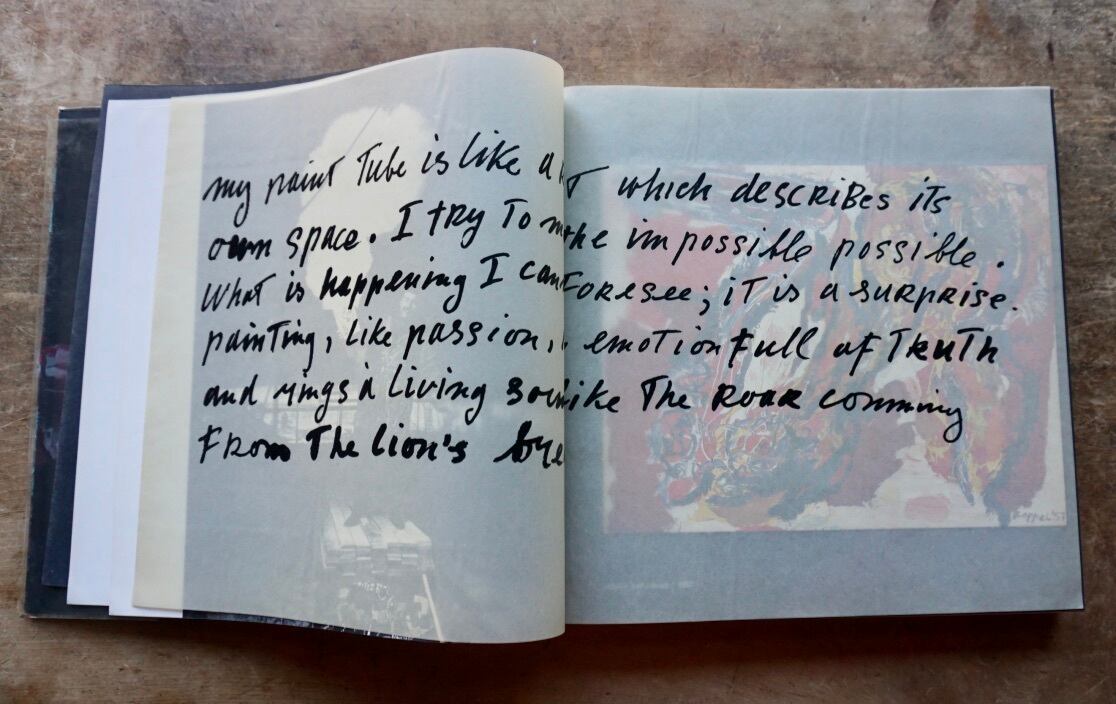 my paint Tube is like a which describes its
own space. I try To the impossible possible.
What is happening I can Foresee; iT is a surprise.
painting, like passion, emotion Full of Truth
and rings a living like The Roar comming
From The Lion's